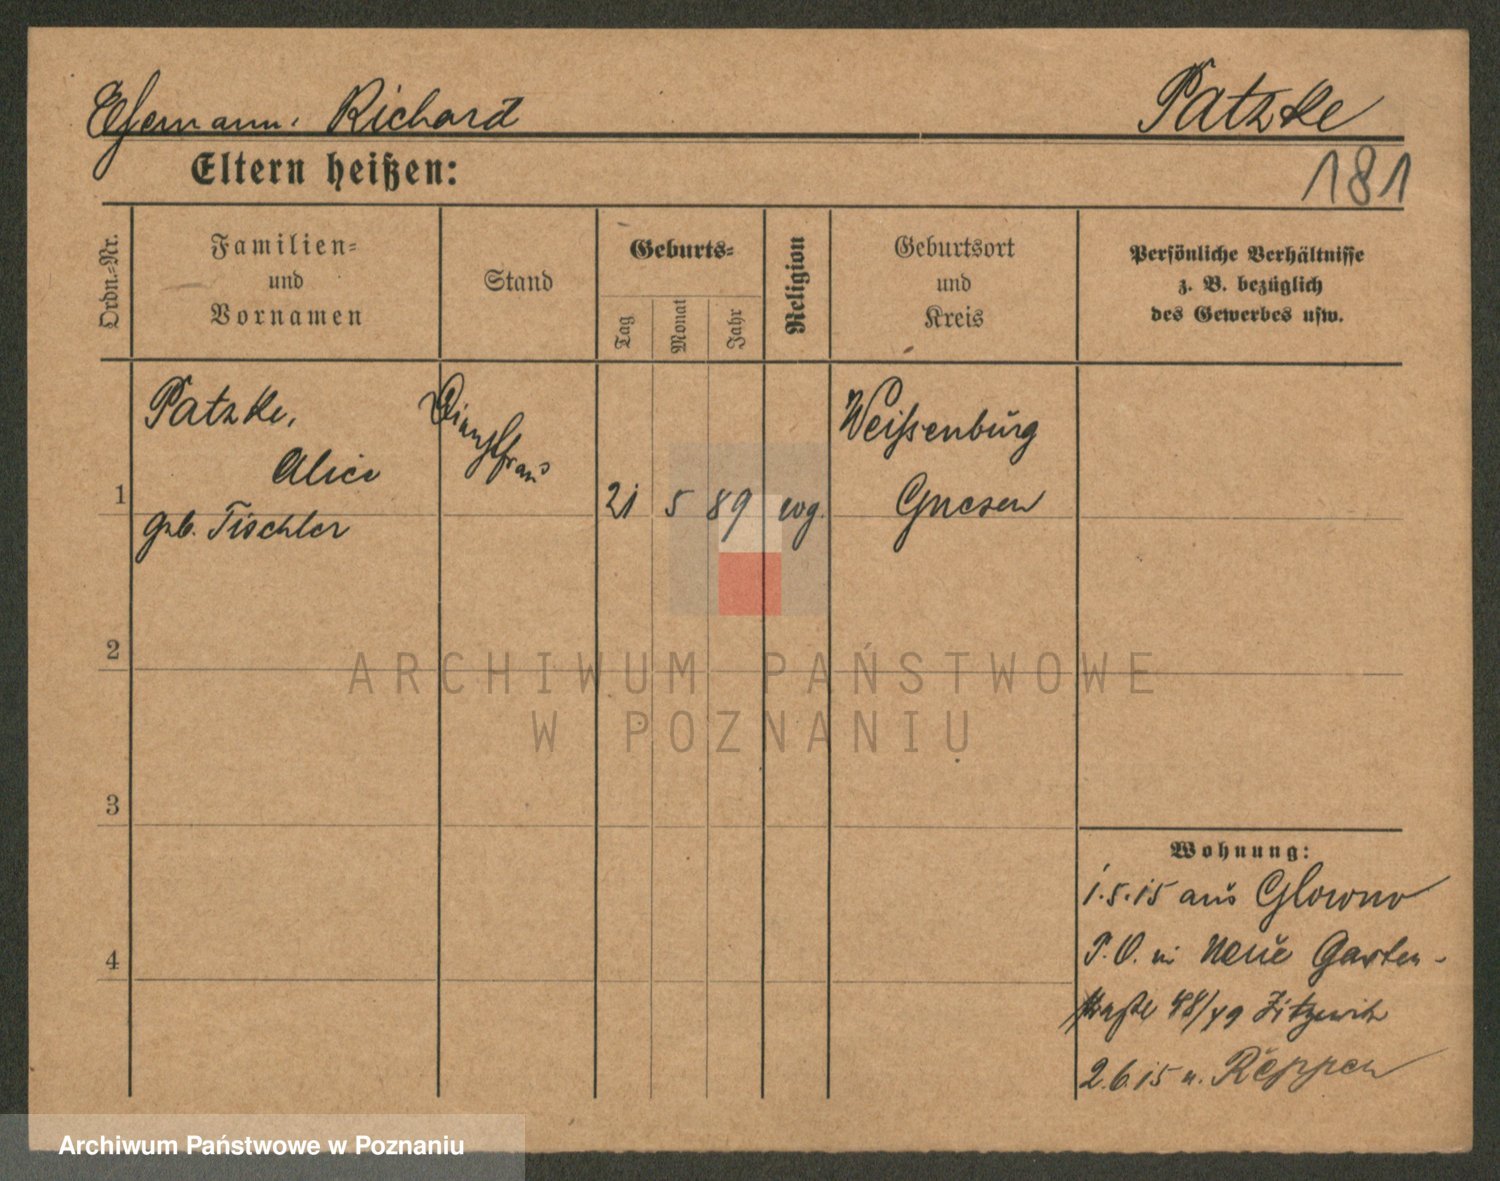 Ehemann: Richard Patzke
Eltern heißen: 181
Ordn.-Nr.
Familien-
und
Vornamen
Stand
Geburts-
Tag
Monat
Jahr
Religion
Geburtsort
und
Kreis
Persönliche Verhältnisse
z. B. bezüglich
des Gewerbes usw.
Patzke,
Alice
geb. Tischler
1
21 5 89 evg.
Weißenburg
Gnesen
2
3
4
Wohnung:
1.5.15 aus Glowno
P.O. in Neue Garten-
straße 48/49 Zitzewitz
2.6.15 n. Reppen
ARCHIWUM PAŃSTWOWE
W POZNANIU
Archiwum Państwowe w Poznaniu